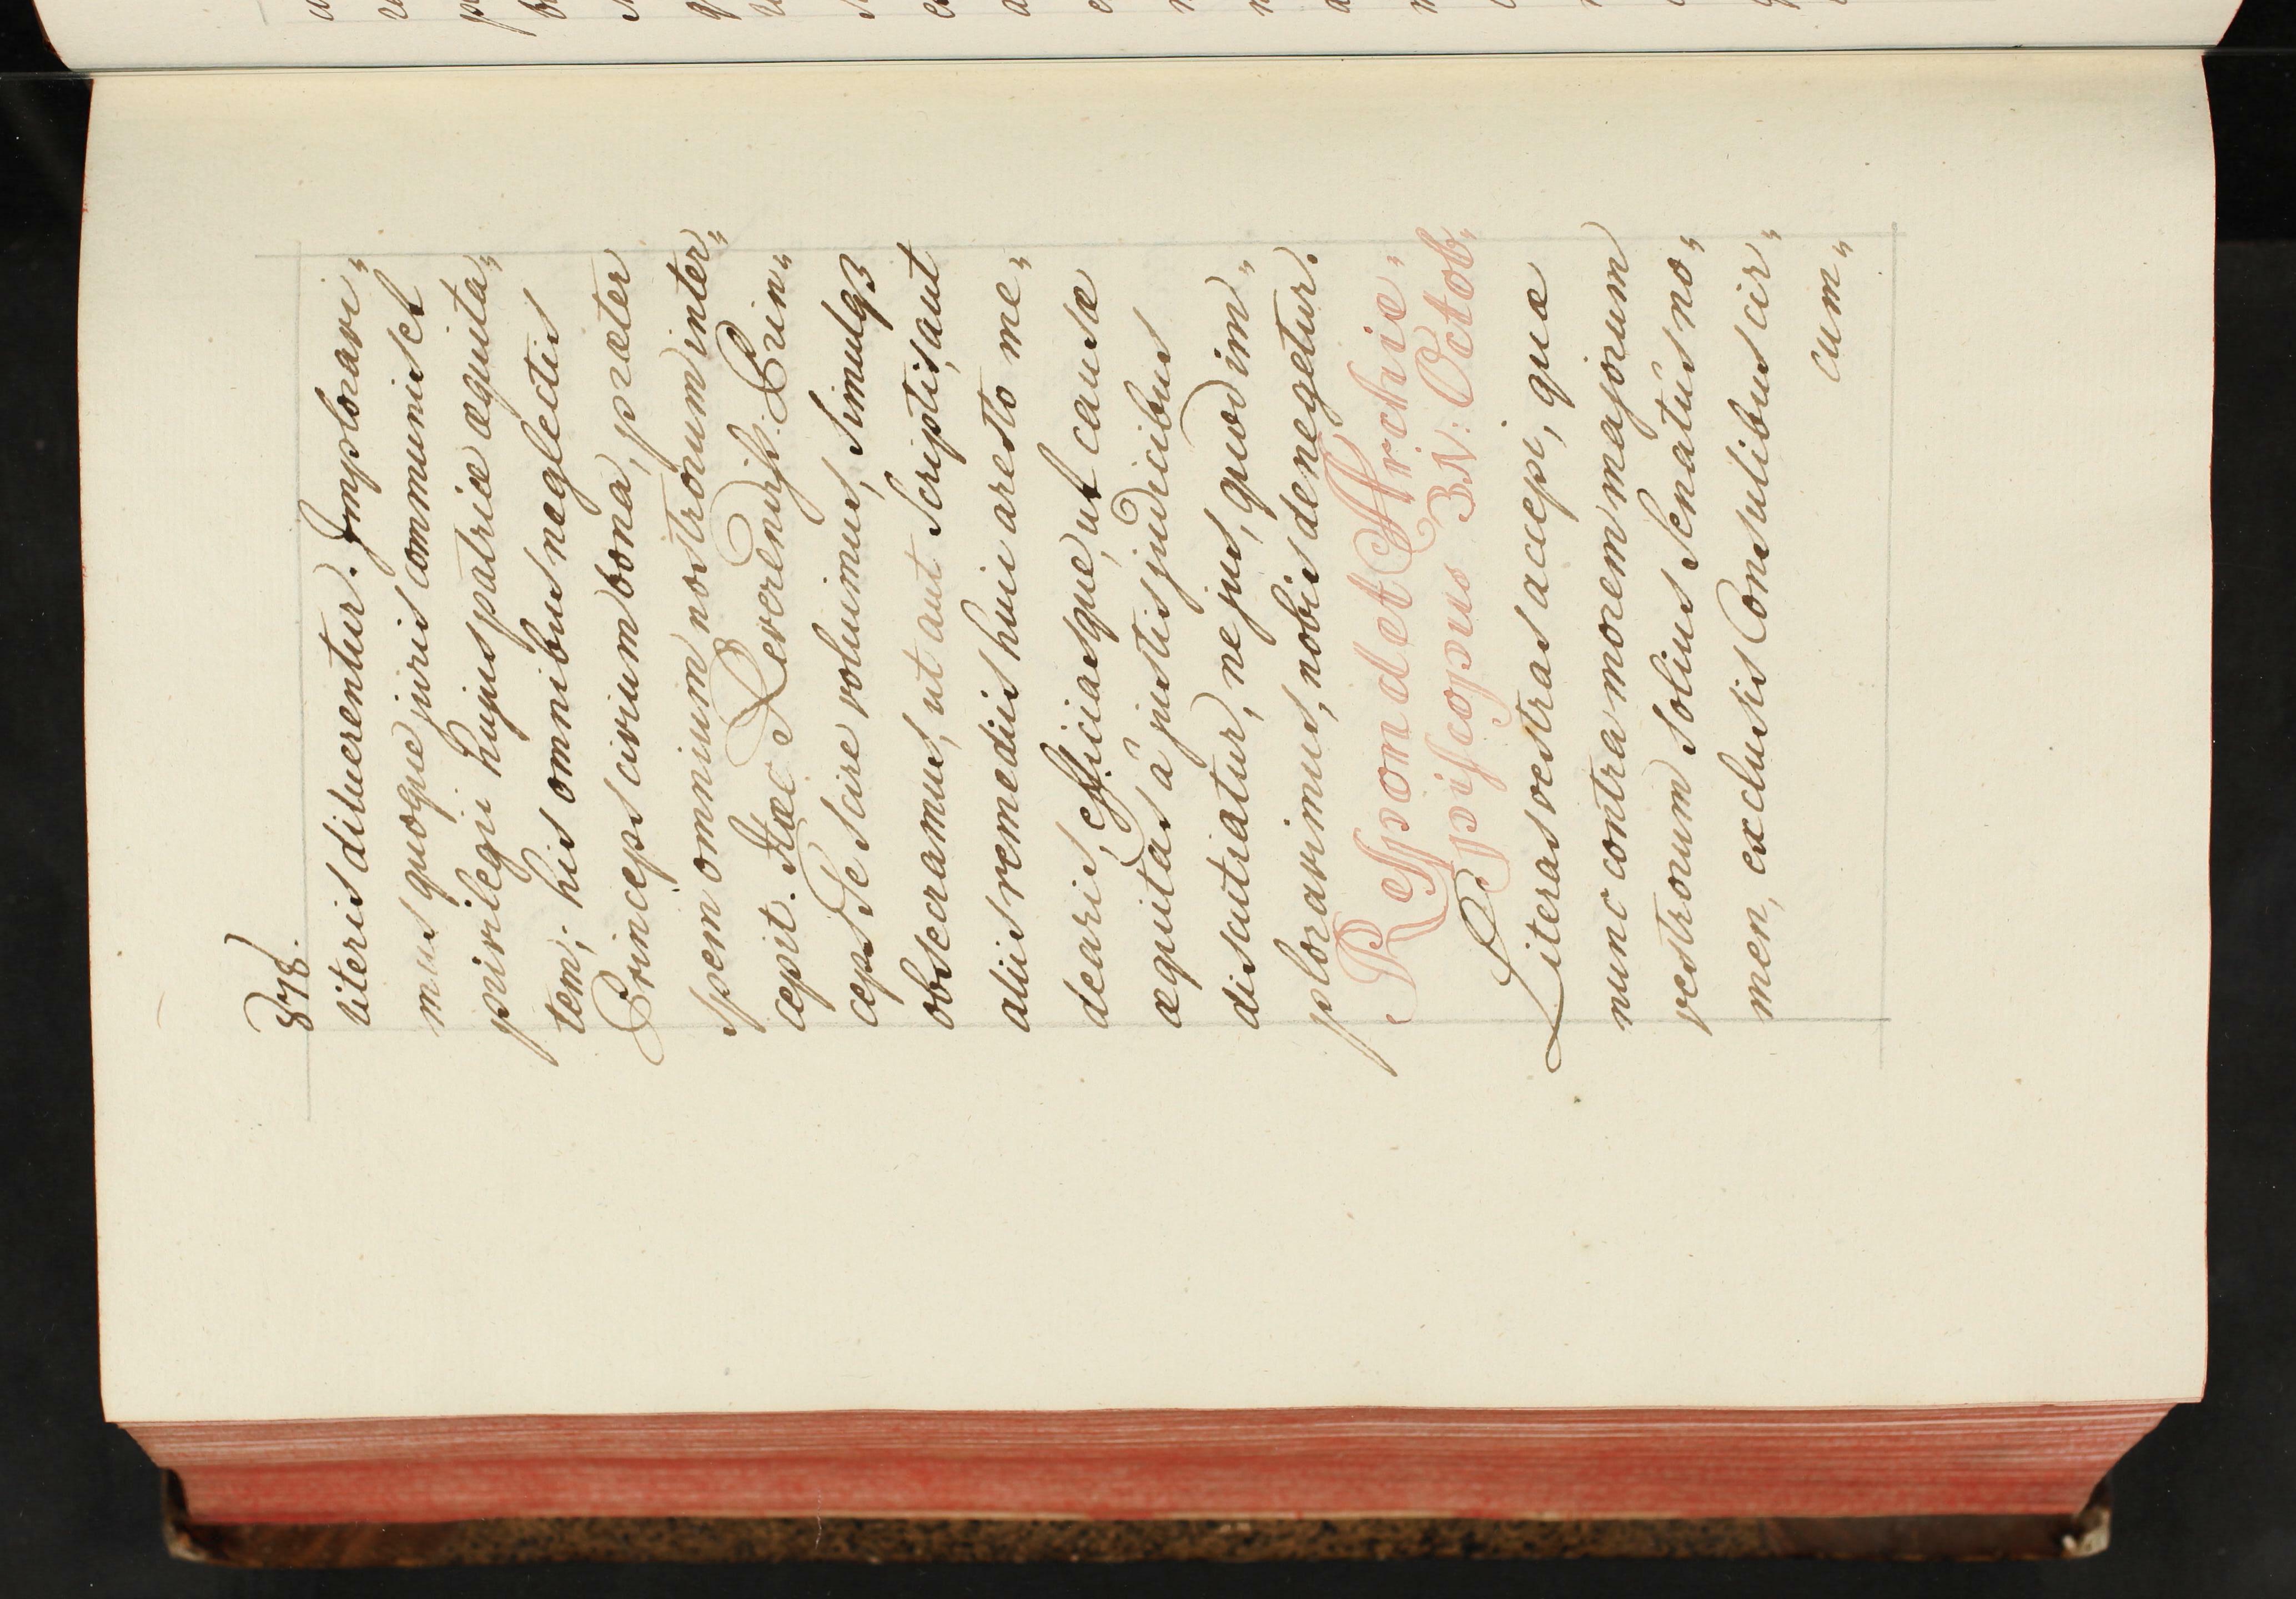 878.
literis diluerentur. Implorari„
mus quoque juris communis et
privilegii hujus patriæ æquita„
tem; his omnibus neglectis
Princeps civium bona, præter
spem omnium nostrorum inter„
cepit. Hæc Reverendiss: Prin„
ceps Te scire voluimus, simulqȝ
obsecramus, ut aut scriptis, aut
aliis remediis huic aresto me„
dearis, efficiasque, ut causæ
æquitas â justis judicibus
discutiatur, ne jus, quod im„
ploravimus, nobis denegetur.
Respondet Archie„
piscopus 3 N: Octob„
Literas vestras accepi, quæ
nunc contra morem majorum
vestrorum solius Senatûs no„
men, exclusis Consulibus cir„
cum„